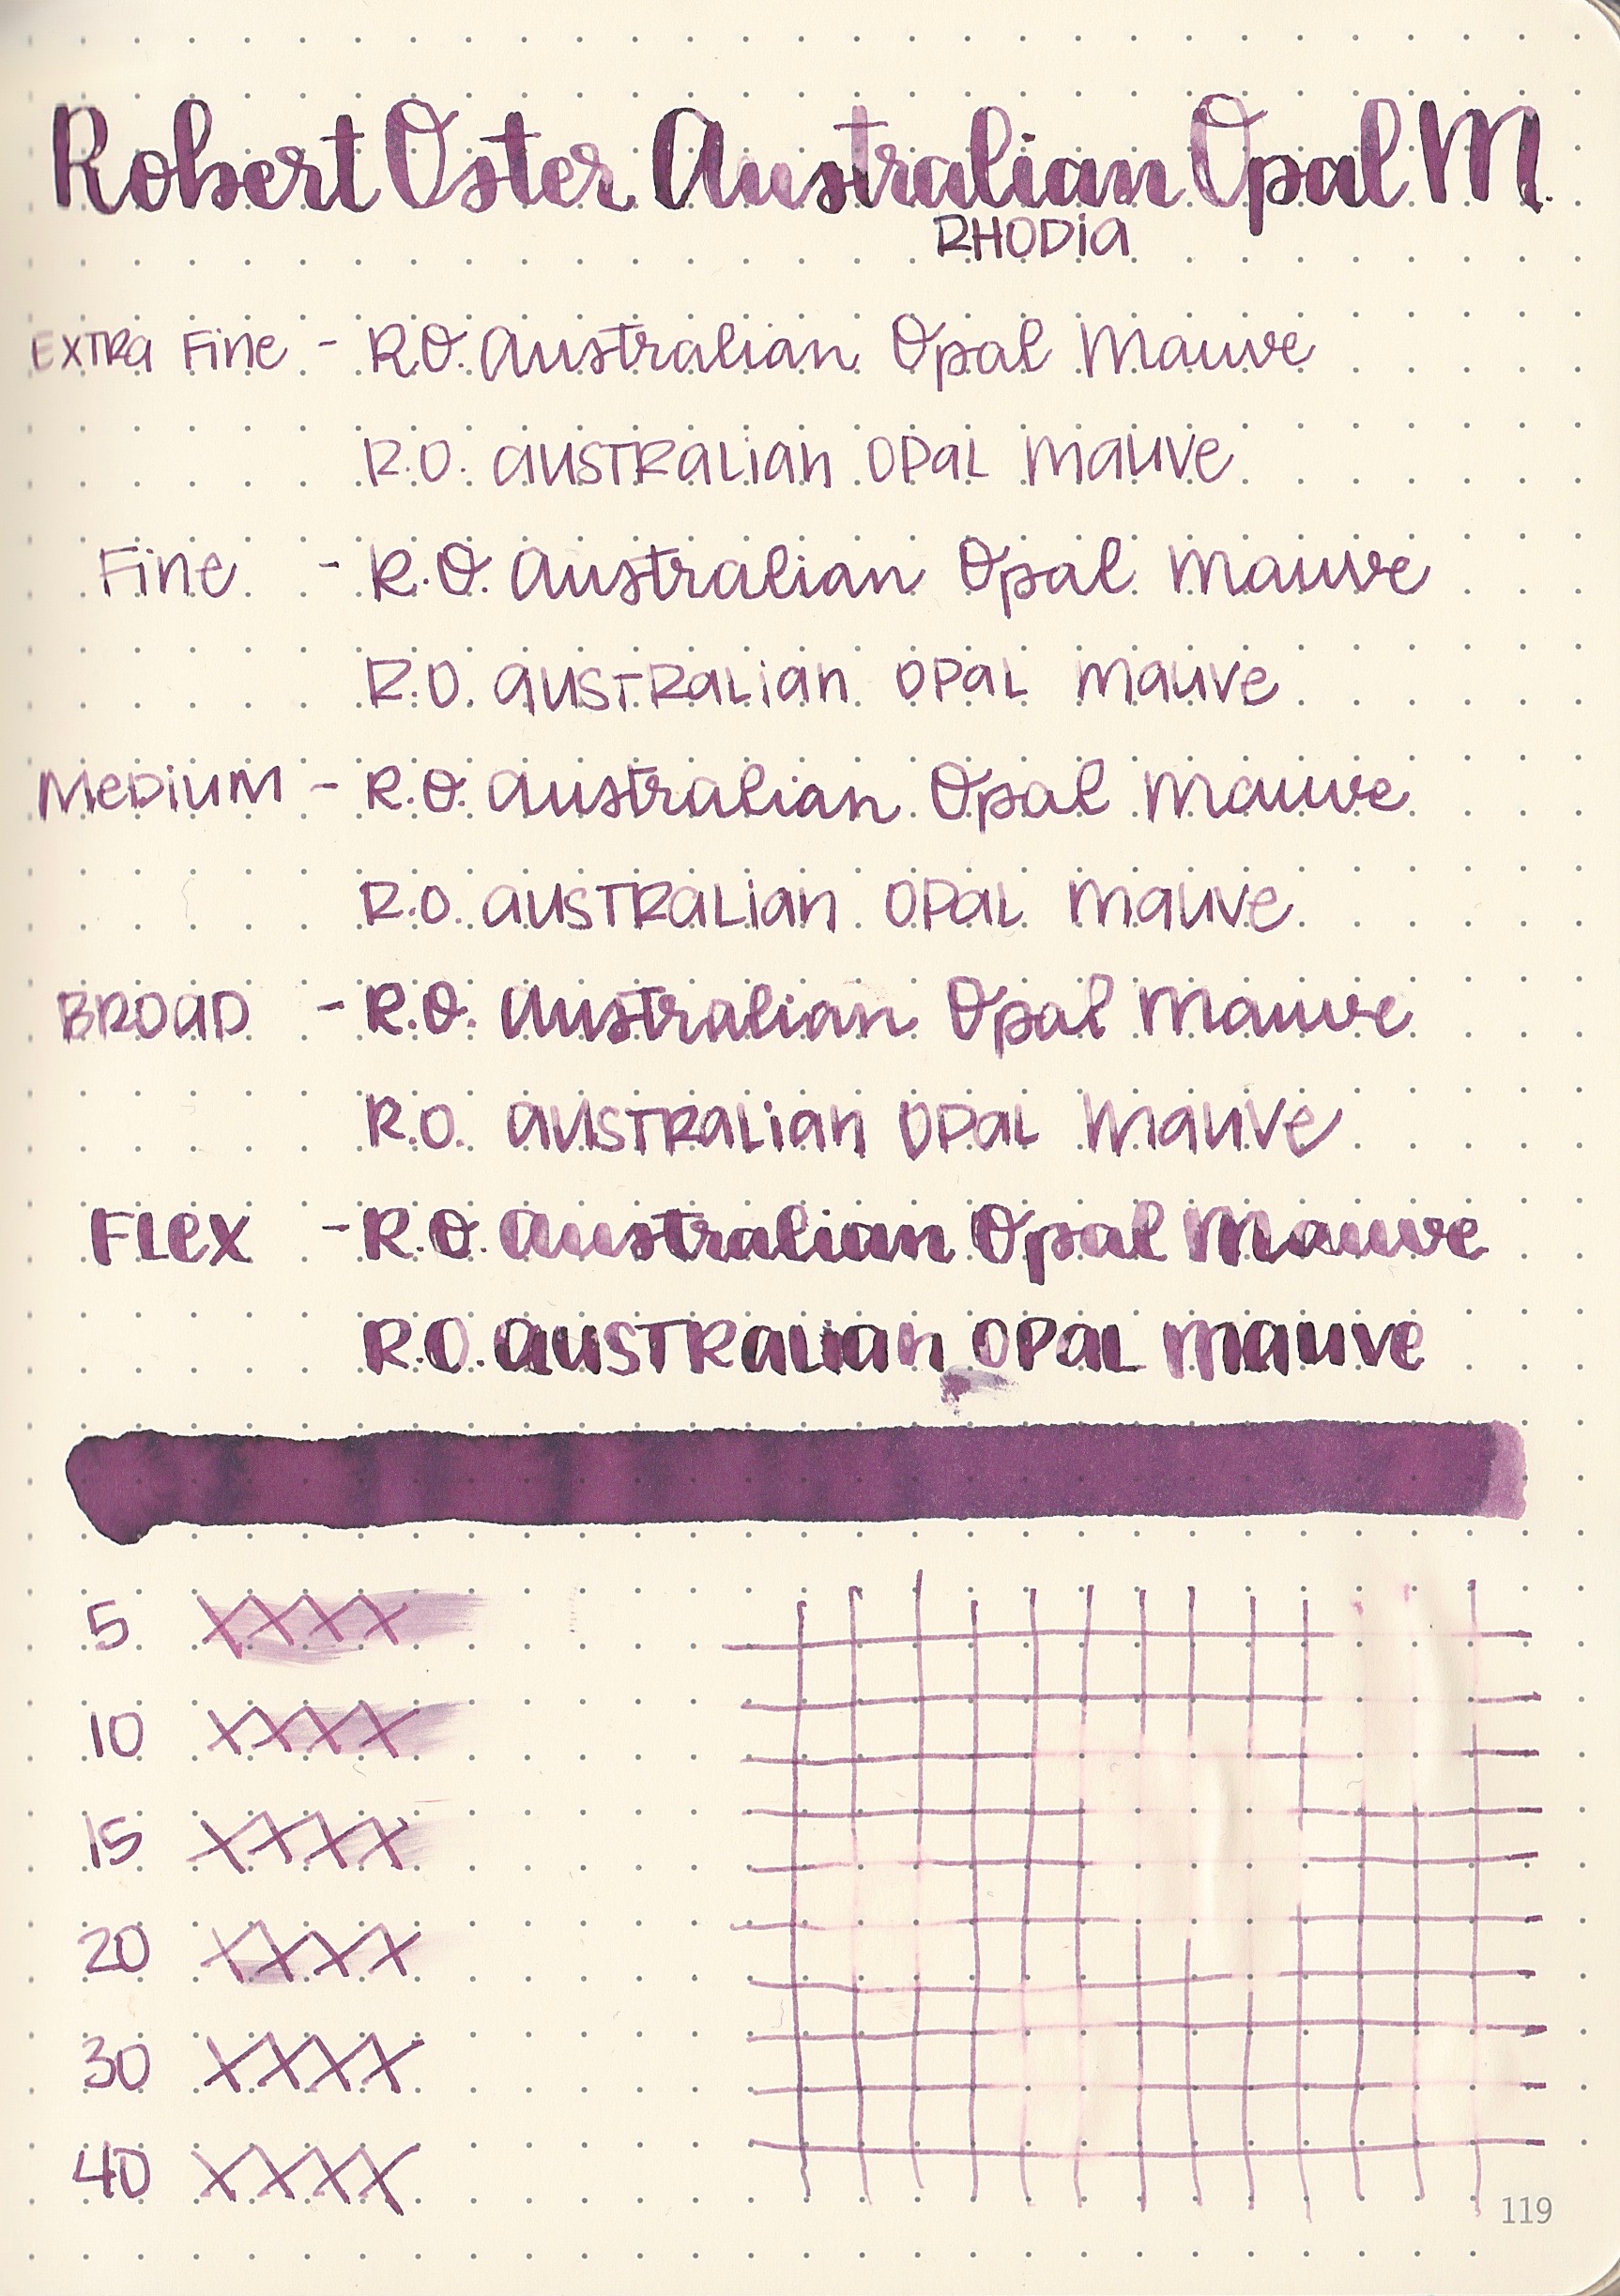 Robert Oster Australian Opal M.
RHODIA
EXTRA Fine - R.O. Australian Opal Mauve
R.O. AUSTRALIAN OPAL MAUVE
Fine - R.O. Australian Opal Mauve
R.O. AUSTRALIAN OPAL MAUVE
MEDIUM - R.O. Australian Opal Mauve
R.O. AUSTRALIAN OPAL MAUVE
BROAD - R.O. Australian Opal Mauve
R.O. AUSTRALIAN OPAL MAUVE
FLEX - R.O. Australian Opal Mauve
R.O. AUSTRALIAN OPAL MAUVE
5 XXXX
10 XXXX
15 XXXX
20 XXXX
30 XXXX
40 XXXX
119